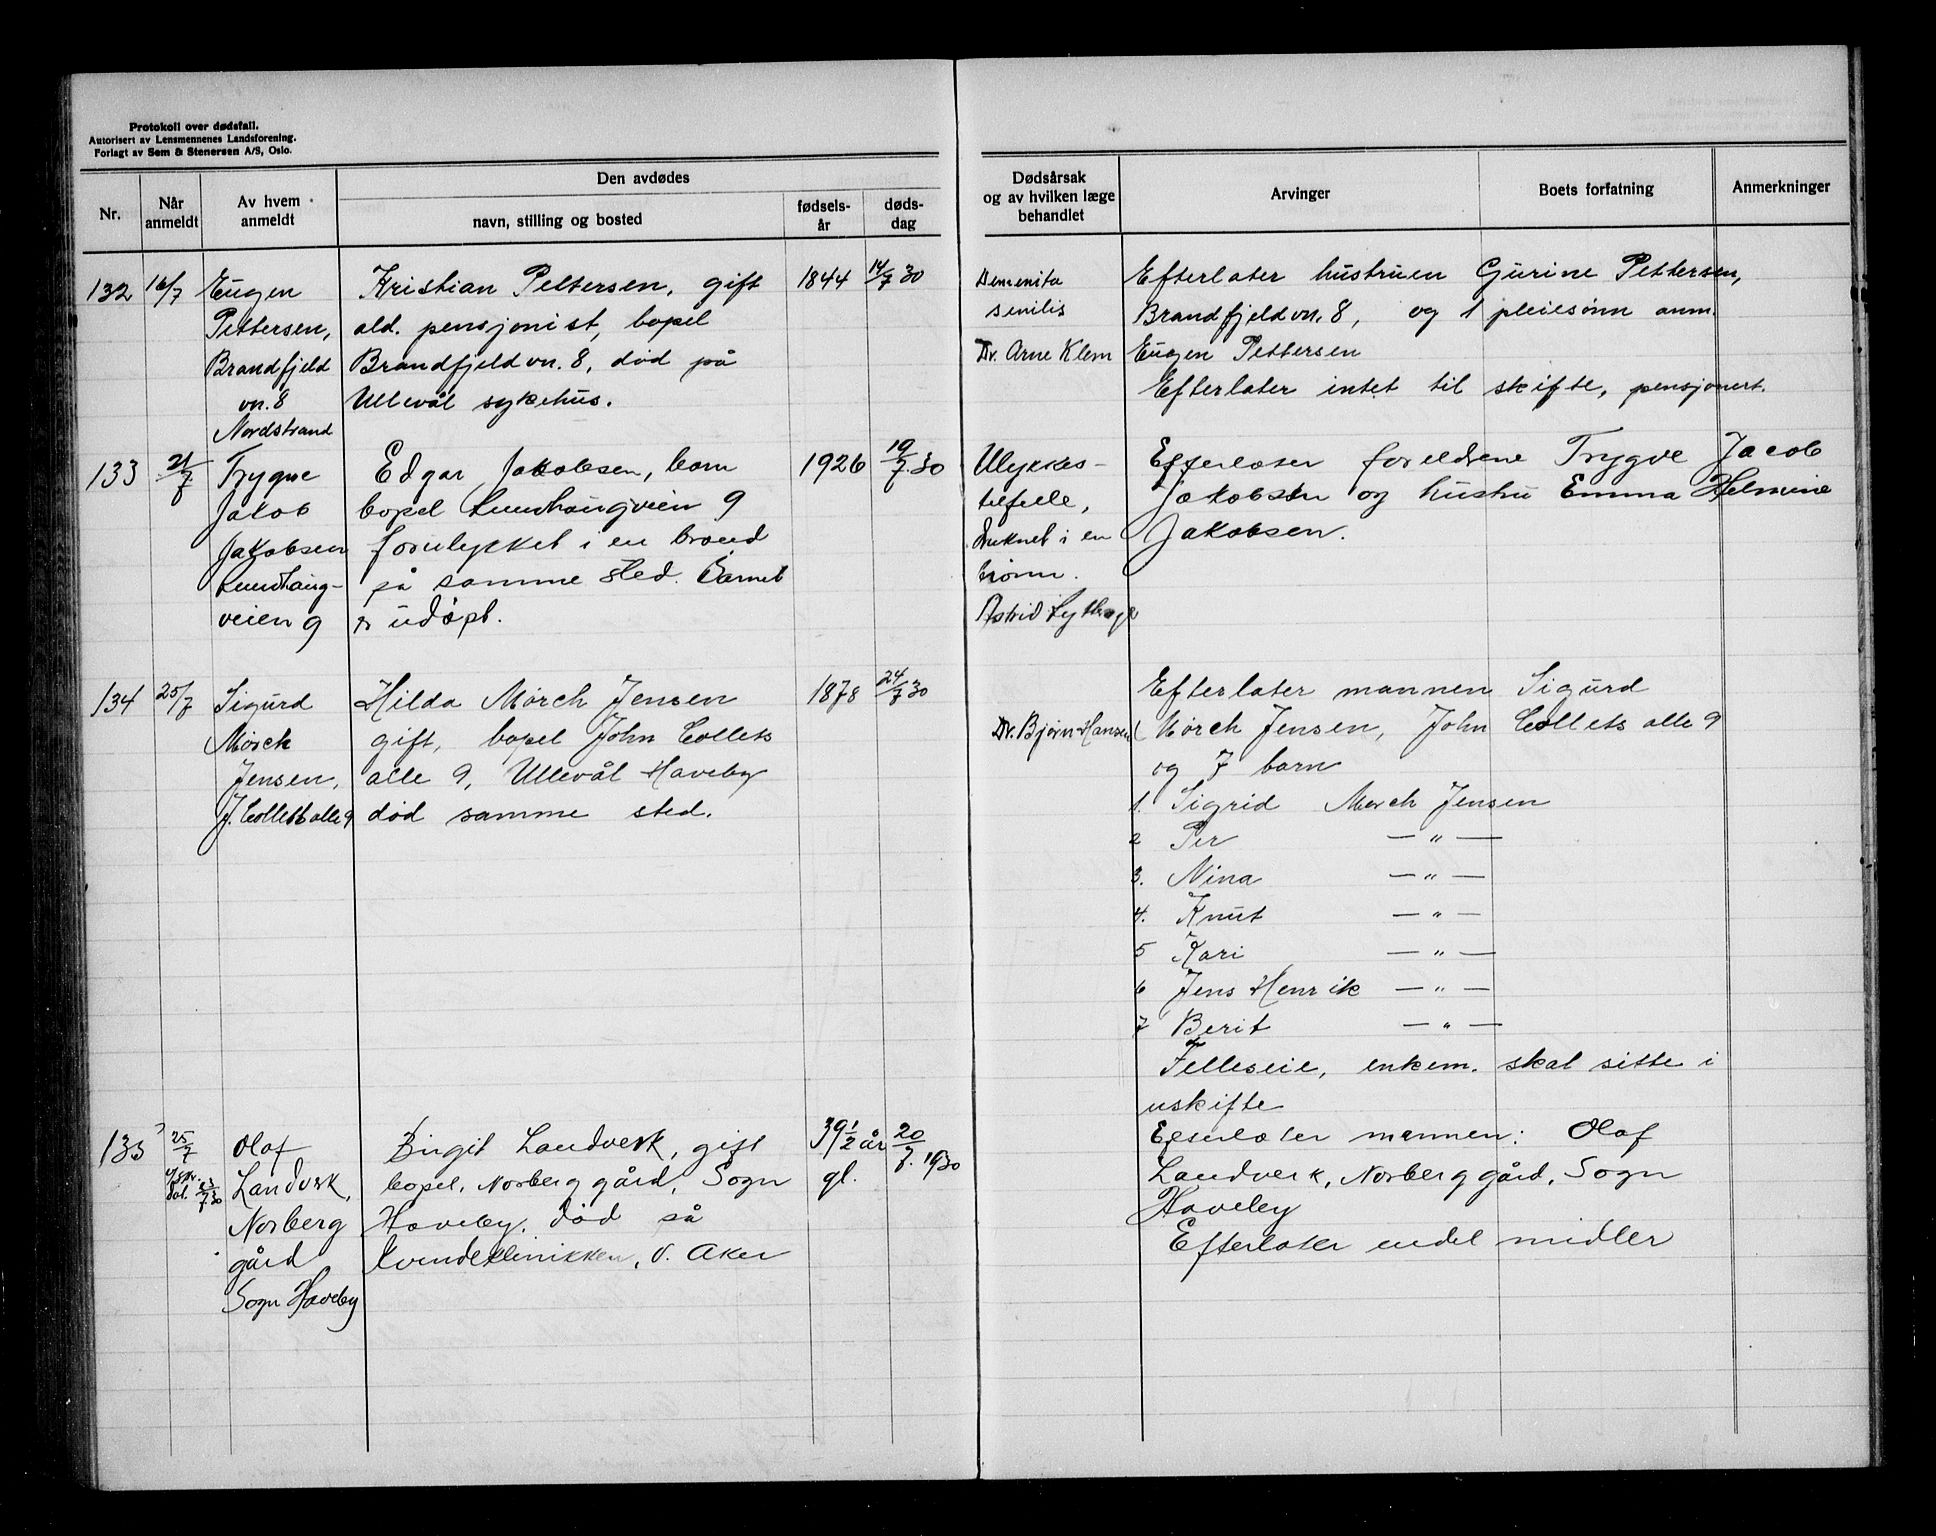 Protokoll over dødsfall.
Autorisert av Lensmennenes Landsforening.
Forlagt av Sem & Stenersen A/S, Oslo.
Nr.
Når anmeldt
Av hvem anmeldt
Den avdødes
navn, stilling og bosted
fødsels-år
døds-dag
Dødsårsak
og av hvilken læge
behandlet
Arvinger
Boets forfatning
Anmerkninger
132
16/7
Eugen
Pettersen,
Brandfjeld
vn. 8
Nordstrand
Kristian Pettersen, gift
ald. pensjonist, bopel
Brandfjeldvn. 8, død på
Ullevål sykehus.
1844
14/7 30
Demenita
senilis
Dr. Arne Klem
Efterlater hustruen Gurine Pettersen,
Brandfjeldvn. 8, og 1 pleiesønn anm.
Eugen Pettersen
Efterlater intet til skifte, pensjonert.
133
21/7
Trygve
Jakob
Jakobsen
Lundhaug-
veien 9
Edgar Jakobsen, barn
bopel Lundhaugveien 9
forulykket i en brønd
på samme sted. Barnet
er udøpt.
1926
19/7 30
Ulykkes-
tilfelle,
Druknet i en
brønn.
Astrid
Efterlater foreldrene Trygve Jacob
Jakobsen og hustru Emma Helmine
Jakobsen.
134
25/7
Sigurd
Mørch
Jensen,
J. Collets alle 9
Hilda Mørch Jensen
gift, bopel John Collets
alle 9, Ullevål Haveby
død samme sted.
1878
24/7 30
Dr. Bjørn Hansen
Efterlater mannen Sigurd
Mørch Jensen, John Collets alle 9
og 7 barn
1. Sigrid Mørch Jensen
2 Per — " —
3. Nina — " —
4. Knut — " —
5 Kari — " —
6 Jens Henrik — " —
7 Berit — " —
Felleseie, enkem. skal sitte i
uskifte
135
25/7
23/7 30
Olaf
Landverk,
Norberg
gård
Sogn Haveby
Birgit Landverk, gift
bopel, Norberg gård, Sogn
Haveby. død på
Kvindeklinikken, V. Aker
39 1/2 år
gl.
20/7. 1930
Efterlater mannen: Olaf
Landverk, Norberg gård, Sogn
Haveby
Efterlater endel midler